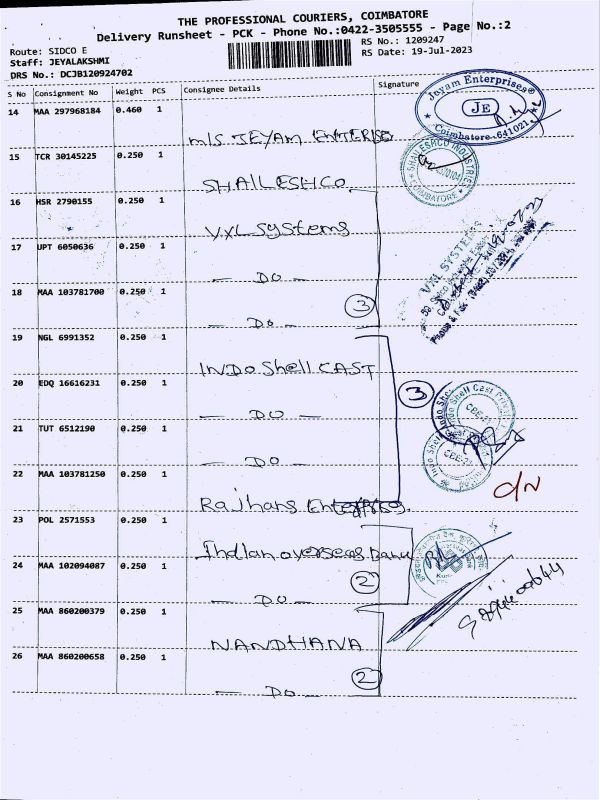 THE PROFESSIONAL COURIERS, COIMBATORE
Delivery Runsheet - PCK - Phone No.:0422-3505555 - Page No.:2
Route: SIDCO E
RS No.: 1209247
Staff: JEYALAKSHMI
RS Date: 19-Jul-2023
DRS No.: DCJB120924702
S No Consignment No Weight PCS Consignee Details Signature
14 MAA 297968184 0.460 1
M/S JEYAM ENTERPRISE
Jayam Enterprises
JE
Coimbatore-641021
15 TCR 30145225 0.250 1
SHAILESHCO
SHAILESHCO INDUSTRIES
COIMBATORE
16 HSR 2790155 0.250 1
VXL SYSTEMS
VXL SYSTEMS
17 UPT 6050636 0.250 1
— DO —
18 MAA 103781700 0.250 1
— DO —
3
19 NGL 6991352 0.250 1
INDO Shell CAST
20 EDQ 16616231 0.250 1
— DO —
3
Indo Shell Cast Private
CBE-21
21 TUT 6512190 0.250 1
— DO —
Indo Shell
CBE-21
22 MAA 103781250 0.250 1
Rajhans Enterprises.
23 POL 2571553 0.250 1
Indian overseas Bank
24 MAA 102094087 0.250 1
— DO —
2
25 MAA 860200379 0.250 1
NANDHANA
26 MAA 860200658 0.250 1
— DO —
2